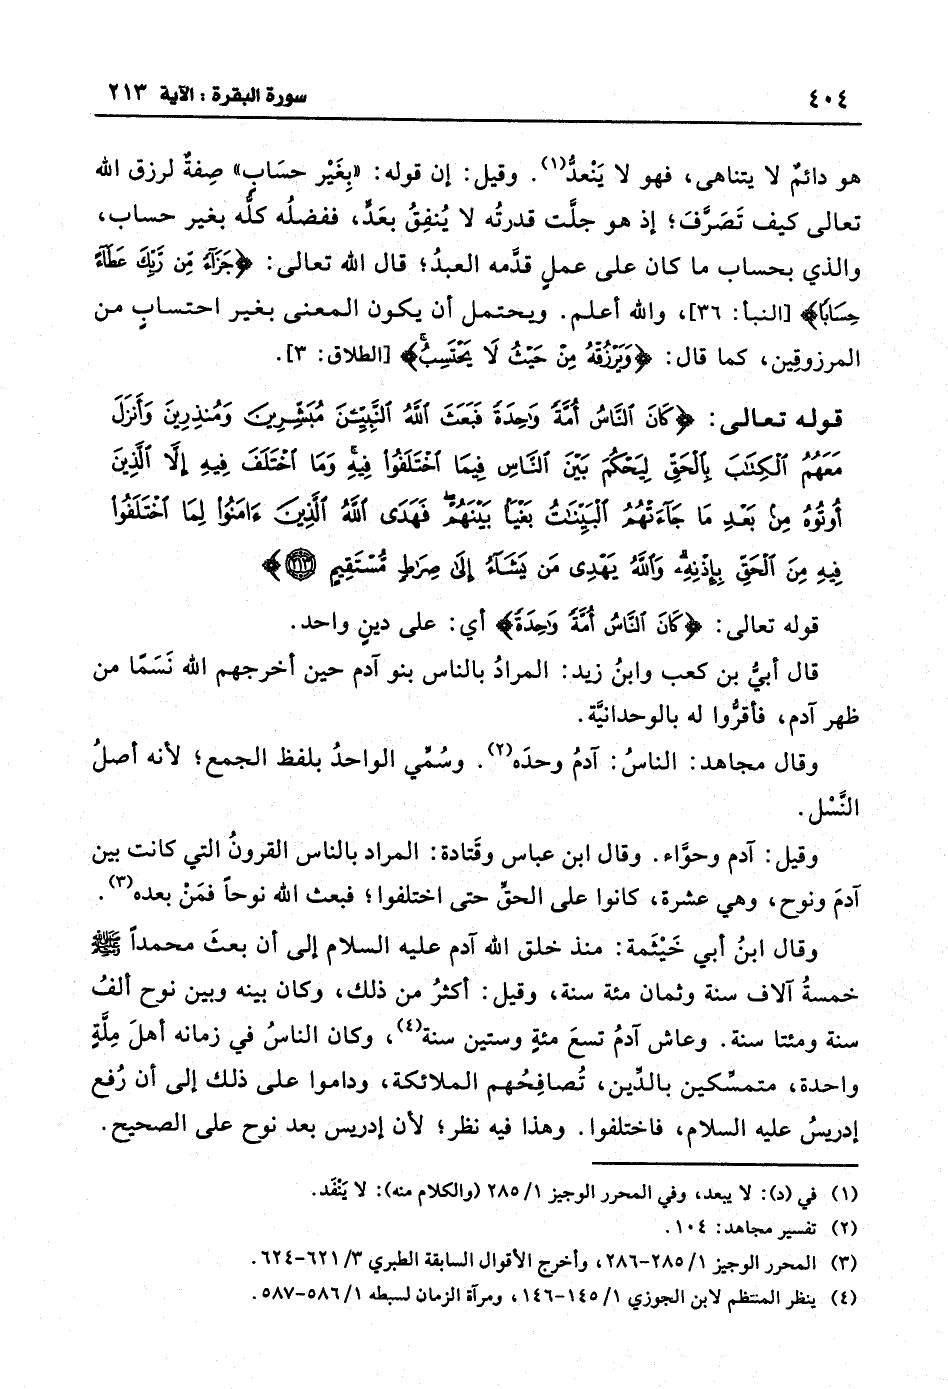 ٤٠٤ سورة البقرة : الآية ٢١٣
هو دائمٌ لا يتناهى، فهو لا يَنْعدُّ(١). وقيل: إن قوله: «بِغَيْر حسَابٍ» صِفةٌ لرزق الله
تعالى كيف تَصَرَّفَ؛ إذ هو جلَّت قدرتُه لا يُنفِقُ بعَدٍّ، ففضلُه كلُّه بغير حساب،
والذي بحساب ما كان على عملٍ قدَّمه العبدُ؛ قال الله تعالى: ﴿جَزَآءً مِّن رَّبِّكَ عَطَآءً
حِسَابًا﴾ [النبأ: ٣٦]، والله أعلم. ويحتمل أن يكون المعنى بغير احتسابٍ من
المرزوقين، كما قال: ﴿وَيَرْزُقْهُ مِنْ حَيْثُ لَا يَحْتَسِبُ﴾ [الطلاق: ٣].
قوله تعالى: ﴿كَانَ ٱلنَّاسُ أُمَّةً وَٰحِدَةً فَبَعَثَ ٱللَّهُ ٱلنَّبِيِّـۧنَ مُبَشِّرِينَ وَمُنذِرِينَ وَأَنزَلَ
مَعَهُمُ ٱلْكِتَٰبَ بِٱلْحَقِّ لِيَحْكُمَ بَيْنَ ٱلنَّاسِ فِيمَا ٱخْتَلَفُوا۟ فِيهِ ۚ وَمَا ٱخْتَلَفَ فِيهِ إِلَّا ٱلَّذِينَ
أُوتُوهُ مِنۢ بَعْدِ مَا جَآءَتْهُمُ ٱلْبَيِّنَٰتُ بَغْيًۢا بَيْنَهُمْ ۖ فَهَدَى ٱللَّهُ ٱلَّذِينَ ءَامَنُوا۟ لِمَا ٱخْتَلَفُوا۟
فِيهِ مِنَ ٱلْحَقِّ بِإِذْنِهِۦ ۗ وَٱللَّهُ يَهْدِى مَن يَشَآءُ إِلَىٰ صِرَٰطٍ مُّسْتَقِيمٍ ٢١٣﴾
قوله تعالى: ﴿كَانَ ٱلنَّاسُ أُمَّةً وَٰحِدَةً﴾ أي: على دينٍ واحد.
قال أبيُّ بن كعب وابنُ زيد: المرادُ بالناس بنو آدم حين أخرجهم الله نَسَمًا من
ظهر آدم، فأقرُّوا له بالوحدانيَّة.
وقال مجاهد: الناسُ: آدمُ وحدَه(٢). وسُمِّي الواحدُ بلفظ الجمع؛ لأنه أصلُ
النَّسْل.
وقيل: آدم وحوَّاء. وقال ابن عباس وقَتادة: المراد بالناس القرونُ التي كانت بين
آدمَ ونوح، وهي عشرة، كانوا على الحقِّ حتى اختلفوا؛ فبعث الله نوحاً فمَنْ بعده(٣).
وقال ابنُ أبي خَيْثَمة: منذ خلق الله آدم عليه السلام إلى أن بعثَ محمداً ﷺ
خمسةُ آلاف سنة وثمان مئة سنة، وقيل: أكثرُ من ذلك، وكان بينه وبين نوح ألفُ
سنة ومئتا سنة. وعاش آدمُ تسعَ مئةٍ وستين سنة(٤)، وكان الناسُ في زمانه أهلَ مِلَّةٍ
واحدة، متمسِّكين بالدِّين، تُصافِحُهم الملائكة، وداموا على ذلك إلى أن رُفع
إدريسُ عليه السلام، فاختلفوا. وهذا فيه نظر؛ لأن إدريس بعد نوح على الصحيح.
(١) في (د): لا يبعد، وفي المحرر الوجيز ١/ ٢٨٥ (والكلام منه): لا يَنْفَد.
(٢) تفسير مجاهد: ١٠٤.
(٣) المحرر الوجيز ١/ ٢٨٥-٢٨٦، وأخرج الأقوال السابقة الطبري ٣/ ٦٢١-٦٢٤.
(٤) ينظر المنتظم لابن الجوزي ١/ ١٤٥-١٤٦، ومرآة الزمان لسبطه ١/ ٥٨٦-٥٨٧.